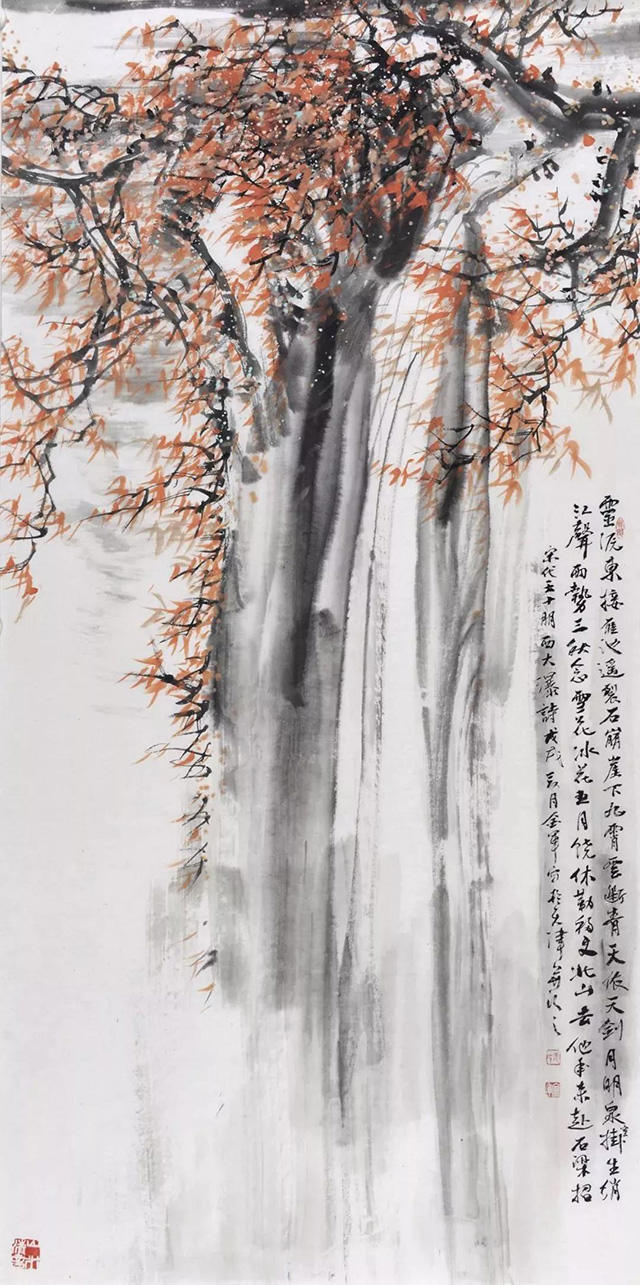 靈源東接雁池遥裂石崩崖下九霄雲斷青天依天劍月明泉室掛生綃
江聲雨勢三秋急雪花冰花五月饒休勒移文北山去他年來赴石梁招
宋代王十朋西大瀑詩戊戌三月金軍寫於天津并